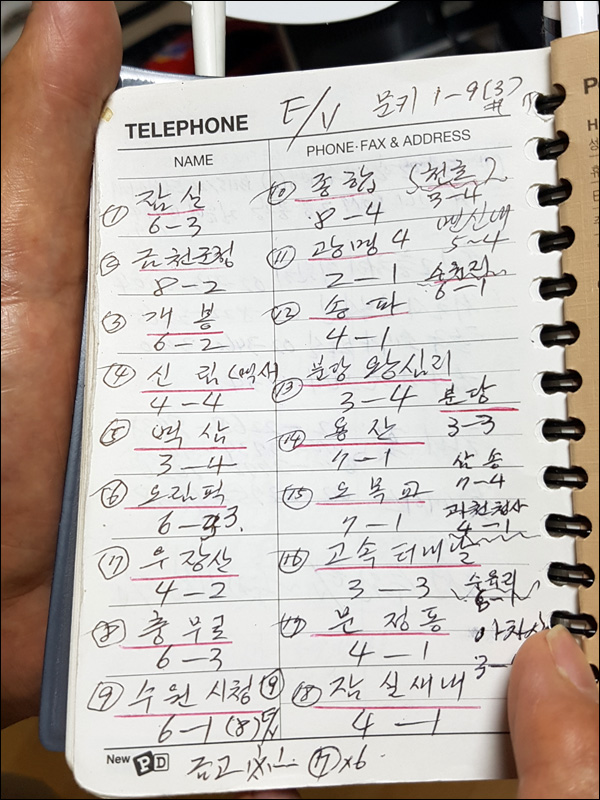 E/V 문키 1-9(3)
#
TELEPHONE
NAME
PHONE·FAX & ADDRESS
① 잠실
6-3
② 금천구청
8-2
③ 개봉
6-2
④ 신림(역사
4-4
⑤ 역삼
3-4
⑥ 오림픽
6-3.
⑦ 우장산
4-2
⑧ 충무로
6-3
⑨ 수원시청 ⑨
6-1 (8)
⑩ 종합
8-4
⑪ 광명 4
2-1
⑫ 송파
4-1
⑬ 분당 왕십리
3-4
⑭ 용산
7-1
⑮ 오목교
7-1
⑯ 고속터미날
3-3
⑰ 문정동
4-1
⑱ 잠실새내
4-1
3-4
연신내
5-4
6-1
분당
3-3
삼송
7-4
과천청사
4-1
수유리
아차산
3-
New PD
금고 ⑦x6